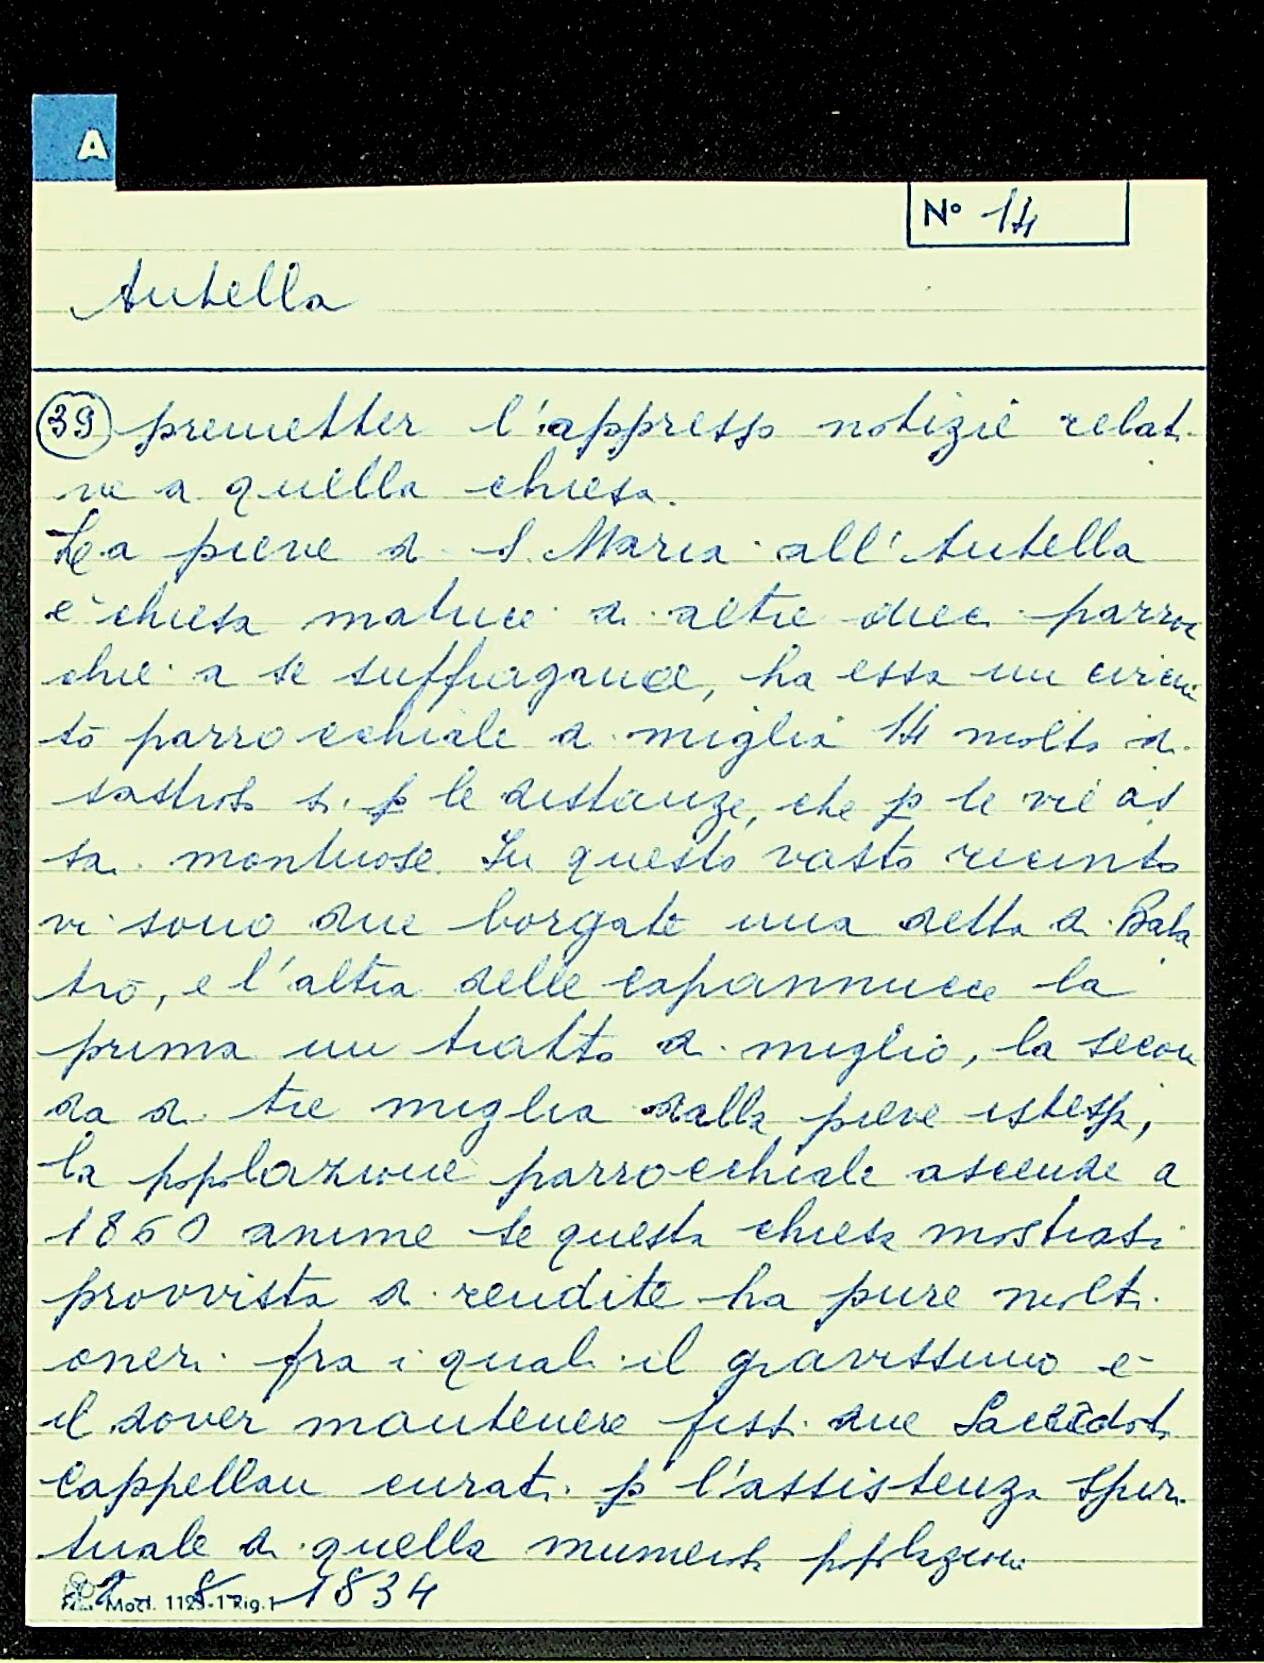 A
N° 14
Antella
39 premetter l'appresso notizie relati
ve a quella chiesa.
La pieve di S Maria all'Antella
è chiesa matrice di altre dieci parroc
chie a se suffraganee, ha essa un circui
to parrocchiale di miglia 14 molto di
sastroso si p le distanze, che p le vie as
sai montuose. In questo vasto recinto
vi sono due borgate una detta di Bala
tro, e l'altra delle capannucce la
prima un tratto di miglio, la secon
da di tre miglia dalla pieve istessa,
la popolazione parrocchiale ascende a
1860 anime se questa chiesa mostrasi
provvista di rendite ha pure molti
oneri fra i quali il gravissimo è
il dover mantenere fissi due Sacerdoti
Cappellani curati p l'assistenza Spiri
tuale di quella numerosa popolazione
8 1834
Mod. 1129-1 Rig. 1